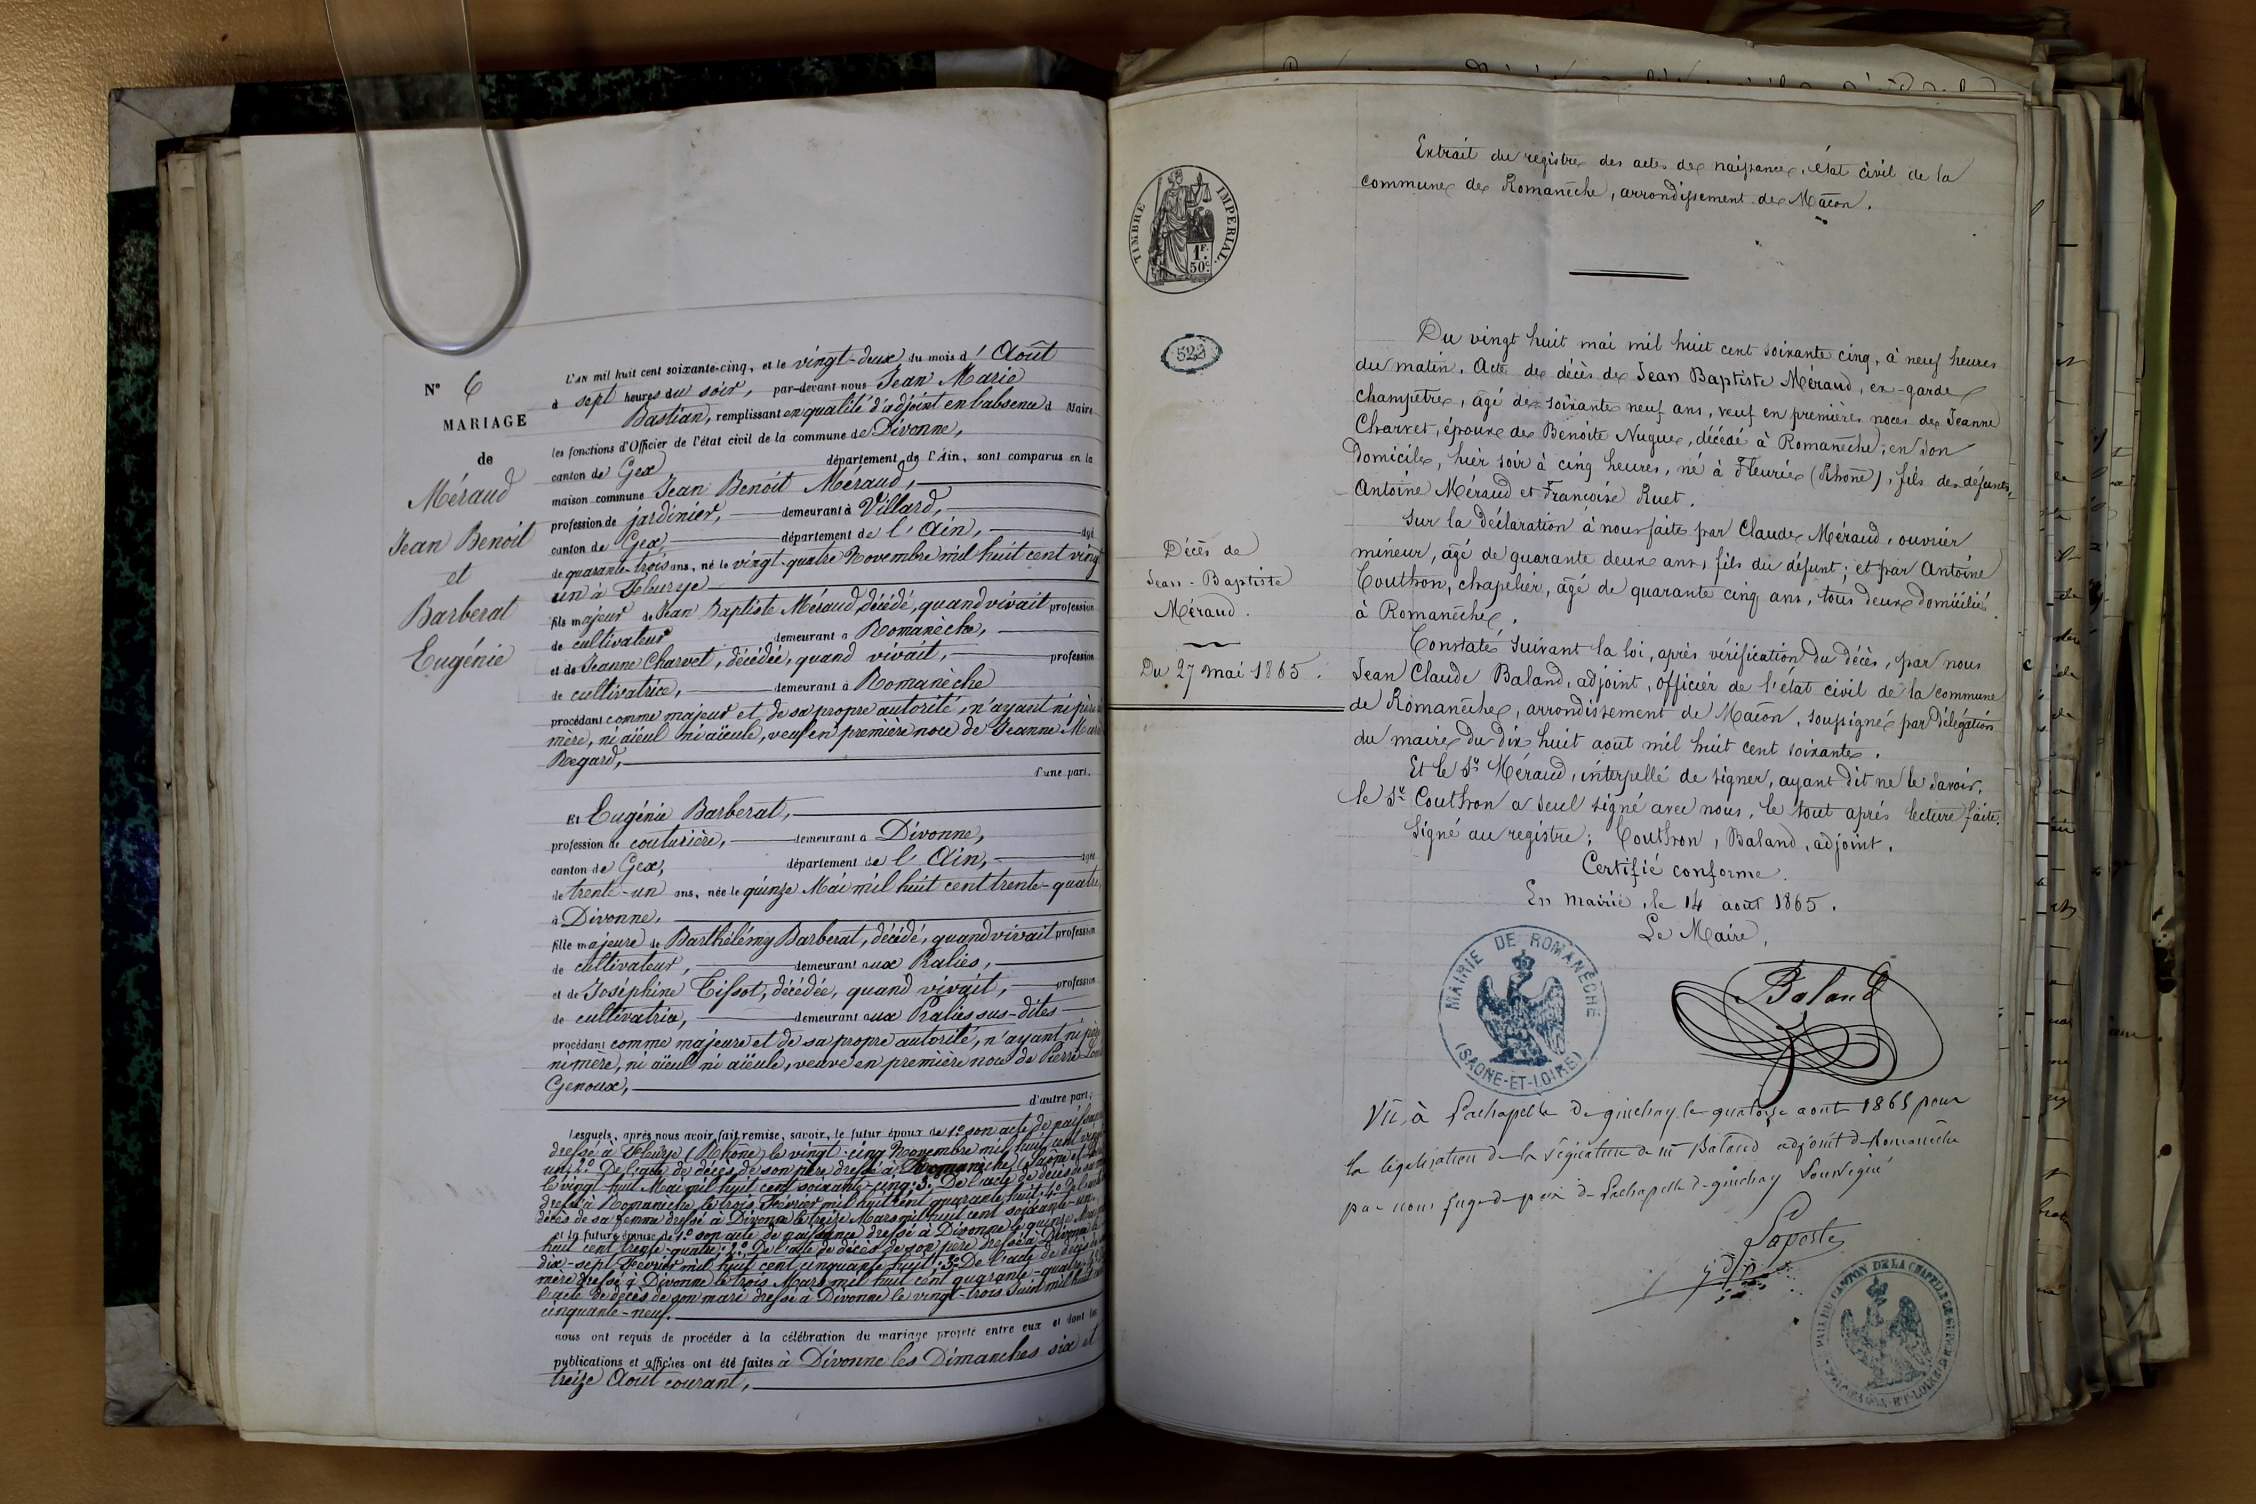 N° 6
MARIAGE
de
Méraud
Jean Benoit
et
Barberat
Eugénie
L'AN mil huit cent soixante-cinq, et le vingt-deux du mois d'Août
à sept heures du soir, par-devant nous Jean Marie
Bastian, remplissant en qualité d'adjoint en l'absence d Maire
les fonctions d'Officier de l'état civil de la commune de Divonne,
canton de Gex département de l'Ain, sont comparus en la
maison commune Jean Benoit Méraud,
profession de jardinier, demeurant à Villard,
canton de Gex département de l'Ain, âgé
de quarante-trois ans, né le vingt-quatre Novembre mil huit cent vingt
un à Fleurye
fils majeur de Jean Baptiste Méraud, décédé, quand vivait profession
de cultivateur demeurant à Romanèche,
et de Jeanne Charvet, décédée, quand vivait, profession
de cultivatrice, demeurant à Romanèche
procédant comme majeur et de sa propre autorité, n'ayant ni père
mère, ni aïeul ni aïeule, veuf en première noce de Jeanne Marie
Regard,
d'une part.
Et Eugénie Barberat,
profession de couturière, demeurant à Divonne,
canton de Gex, département de l'Ain, âgée
de trente-un ans, née le quinze Mai mil huit cent trente-quatre
à Divonne,
fille majeure de Barthélémy Barberat, décédé, quand vivait profession
de cultivateur, demeurant aux Ralies,
et de Joséphine Tissot, décédée, quand vivait, profession
de cultivatrice, demeurant aux Ralies sus-dites
procédant comme majeure et de sa propre autorité, n'ayant ni père
ni mère, ni aïeul ni aïeule, veuve en première noce de Pierre
Genoux,
d'autre part;
Lesquels, après nous avoir fait remise, savoir, le futur époux de 1° son acte de naissance
dressé à Fleurye (Rhône) le vingt-cinq Novembre mil huit cent vingt
un; 2° De l'acte de décès de son père dressé à Romanèche
le vingt huit Mai mil huit cent soixante-cinq; 3° De l'acte de décès de sa mère
dressé à Romanèche le trois Février mil huit cent quarante huit; 4° De l'acte
décès de sa femme dressé à Divonne le treize Mars mil huit cent soixante-un
et la future épouse de 1° son acte de naissance dressé à Divonne le quinze Mai
huit cent trente-quatre; 2° De l'acte de décès de son père dressé à Divonne le
dix-sept Février mil huit cent cinquante huit; 3° De l'acte de décès de
mère dressé à Divonne le trois Mars mil huit cent quarante-quatre;
l'acte de décès de son mari dressé à Divonne le vingt-trois Juin mil huit cent
cinquante-neuf.
nous ont requis de procéder à la célébration du mariage projeté entre eux et dont les
publications et affiches ont été faites à Divonne les Dimanches six et
treize Août courant,
TIMBRE IMPERIAL.
1F.
50c
522
Décès de
Jean-Baptiste
Méraud.
Du 27 mai 1865.
Extrait du registre des actes de naissance, état civil de la
commune de Romanèche, arrondissement de Mâcon.
Du vingt huit mai mil huit cent soixante cinq, à neuf heures
du matin. Acte de décès de Jean Baptiste Méraud, ex-garde
champêtre, âgé de soixante neuf ans, veuf en premières noces de Jeanne
Charvet, époux de Benoite Nugue, décédé à Romanèche, en son
domicile, hier soir à cinq heures, né à Fleurie (Rhône), fils des défunts
Antoine Méraud et Françoise Ruet.
Sur la déclaration à nous faite par Claude Méraud, ouvrier
mineur, âgé de quarante deux ans, fils du défunt; et par Antoine
Couthon, chapelier, âgé de quarante cinq ans, tous deux domiciliés
à Romanèche.
Constaté suivant la loi, après vérification du décès, par nous
Jean Claude Baland, adjoint, officier de l'état civil de la commune
de Romanèche, arrondissement de Mâcon, soussigné par délégation
du maire du dix huit août mil huit cent soixante.
Et le Sr Méraud, interpellé de signer, ayant dit ne le savoir,
le Sr Couthon a seul signé avec nous, le tout après lecture faite.
Signé au registre; Couthon, Baland, adjoint.
Certifié conforme.
En mairie, le 14 août 1865.
Le Maire,
Baland
MAIRIE DE ROMANÈCHE
(SAONE-ET-LOIRE)
Vu, à Lachapelle de guinchay le quatorze août 1865 pour
la légalisation de la signature de M Baland adjoint de Romanèche
par nous juge de paix de Lachapelle de guinchay Soussigné
Laposte
CANTON DE LA CHAPELLE